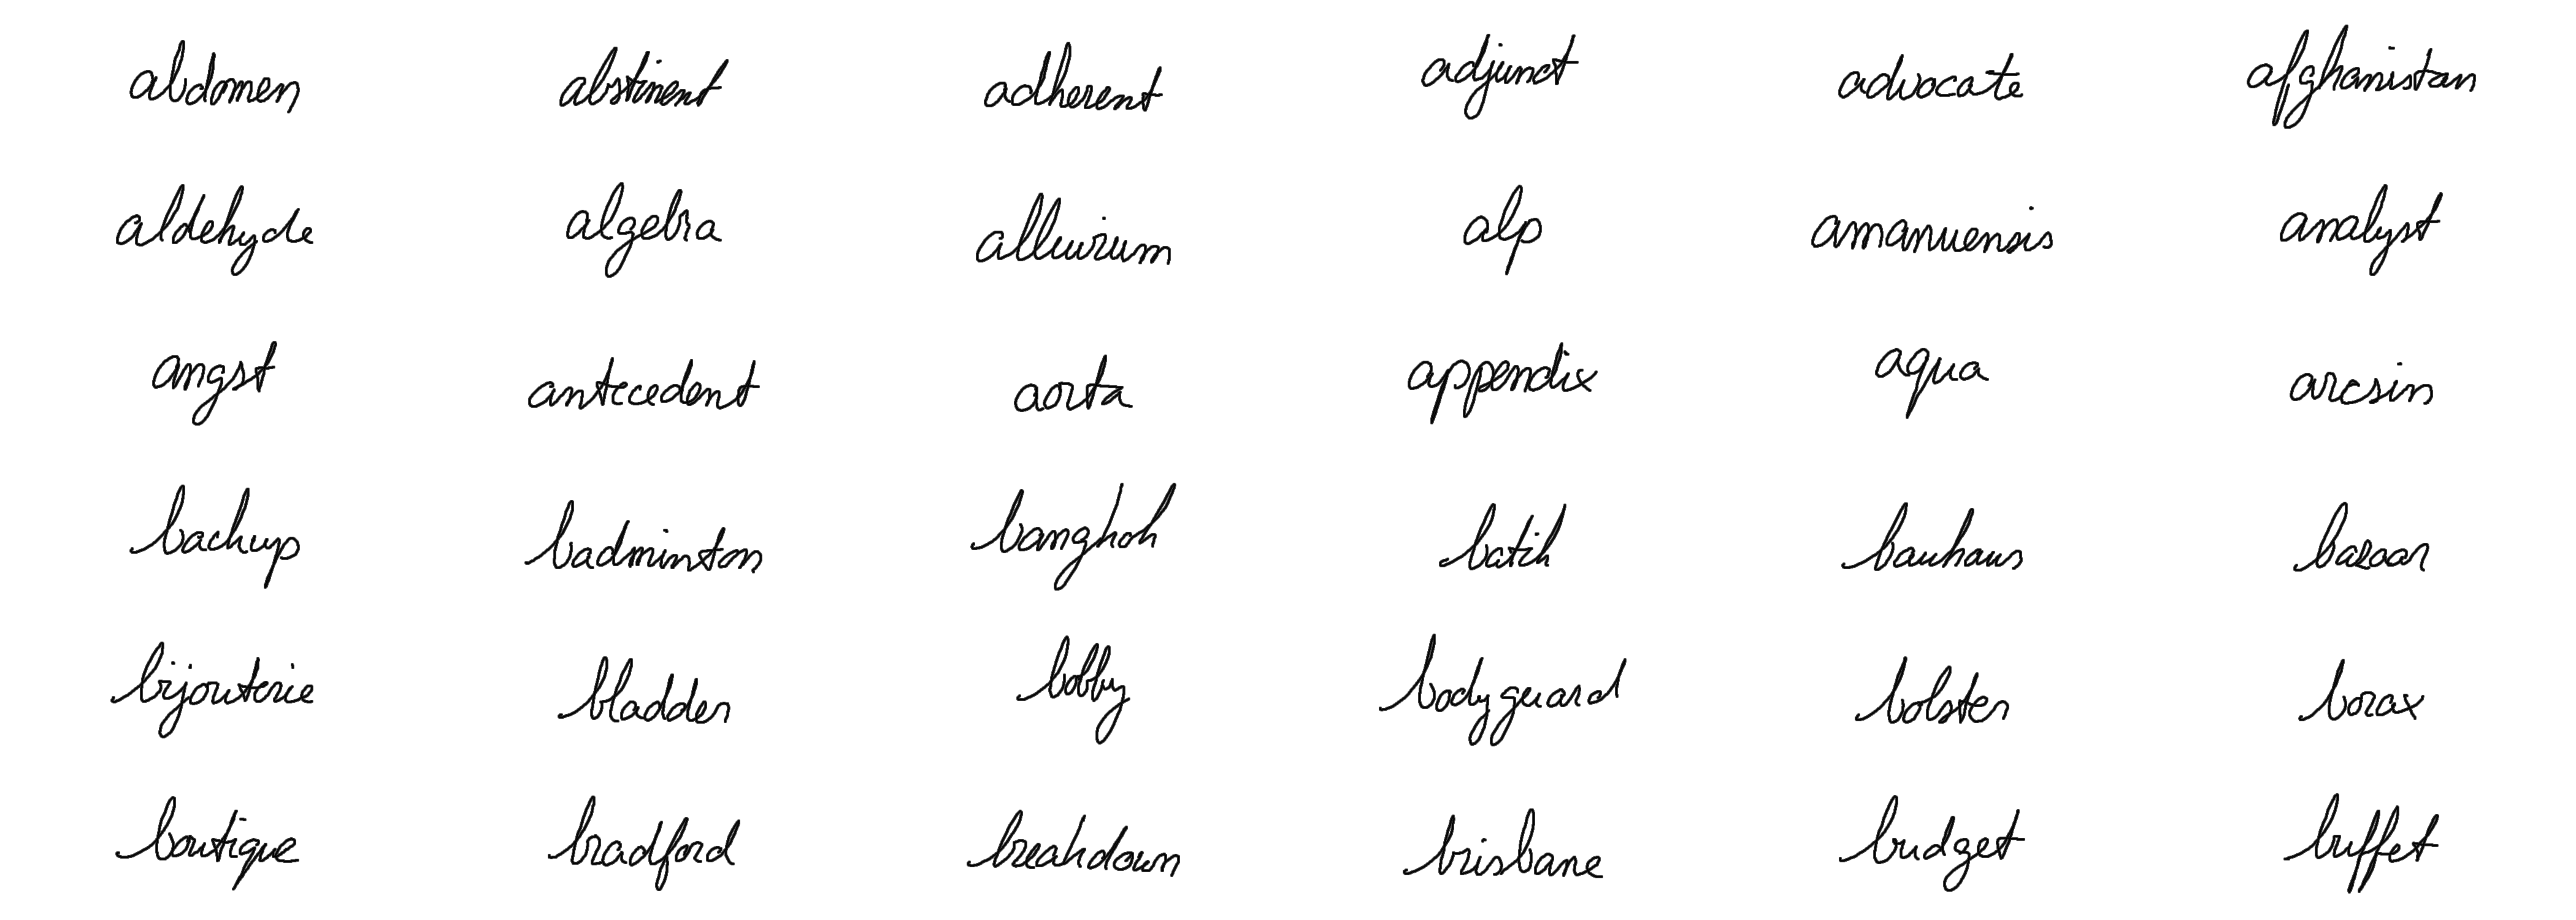 abdomen abstinent adherent adjunct advocate afghanistan
aldehyde algebra alluvium alp amanuensis analyst
angst antecedent aorta appendix aqua arcsin
backup badminton bangkok batik bauhaus bazaar
bijouterie bladder bobby bodyguard bolster borax
boutique bradford breakdown brisbane budget buffet